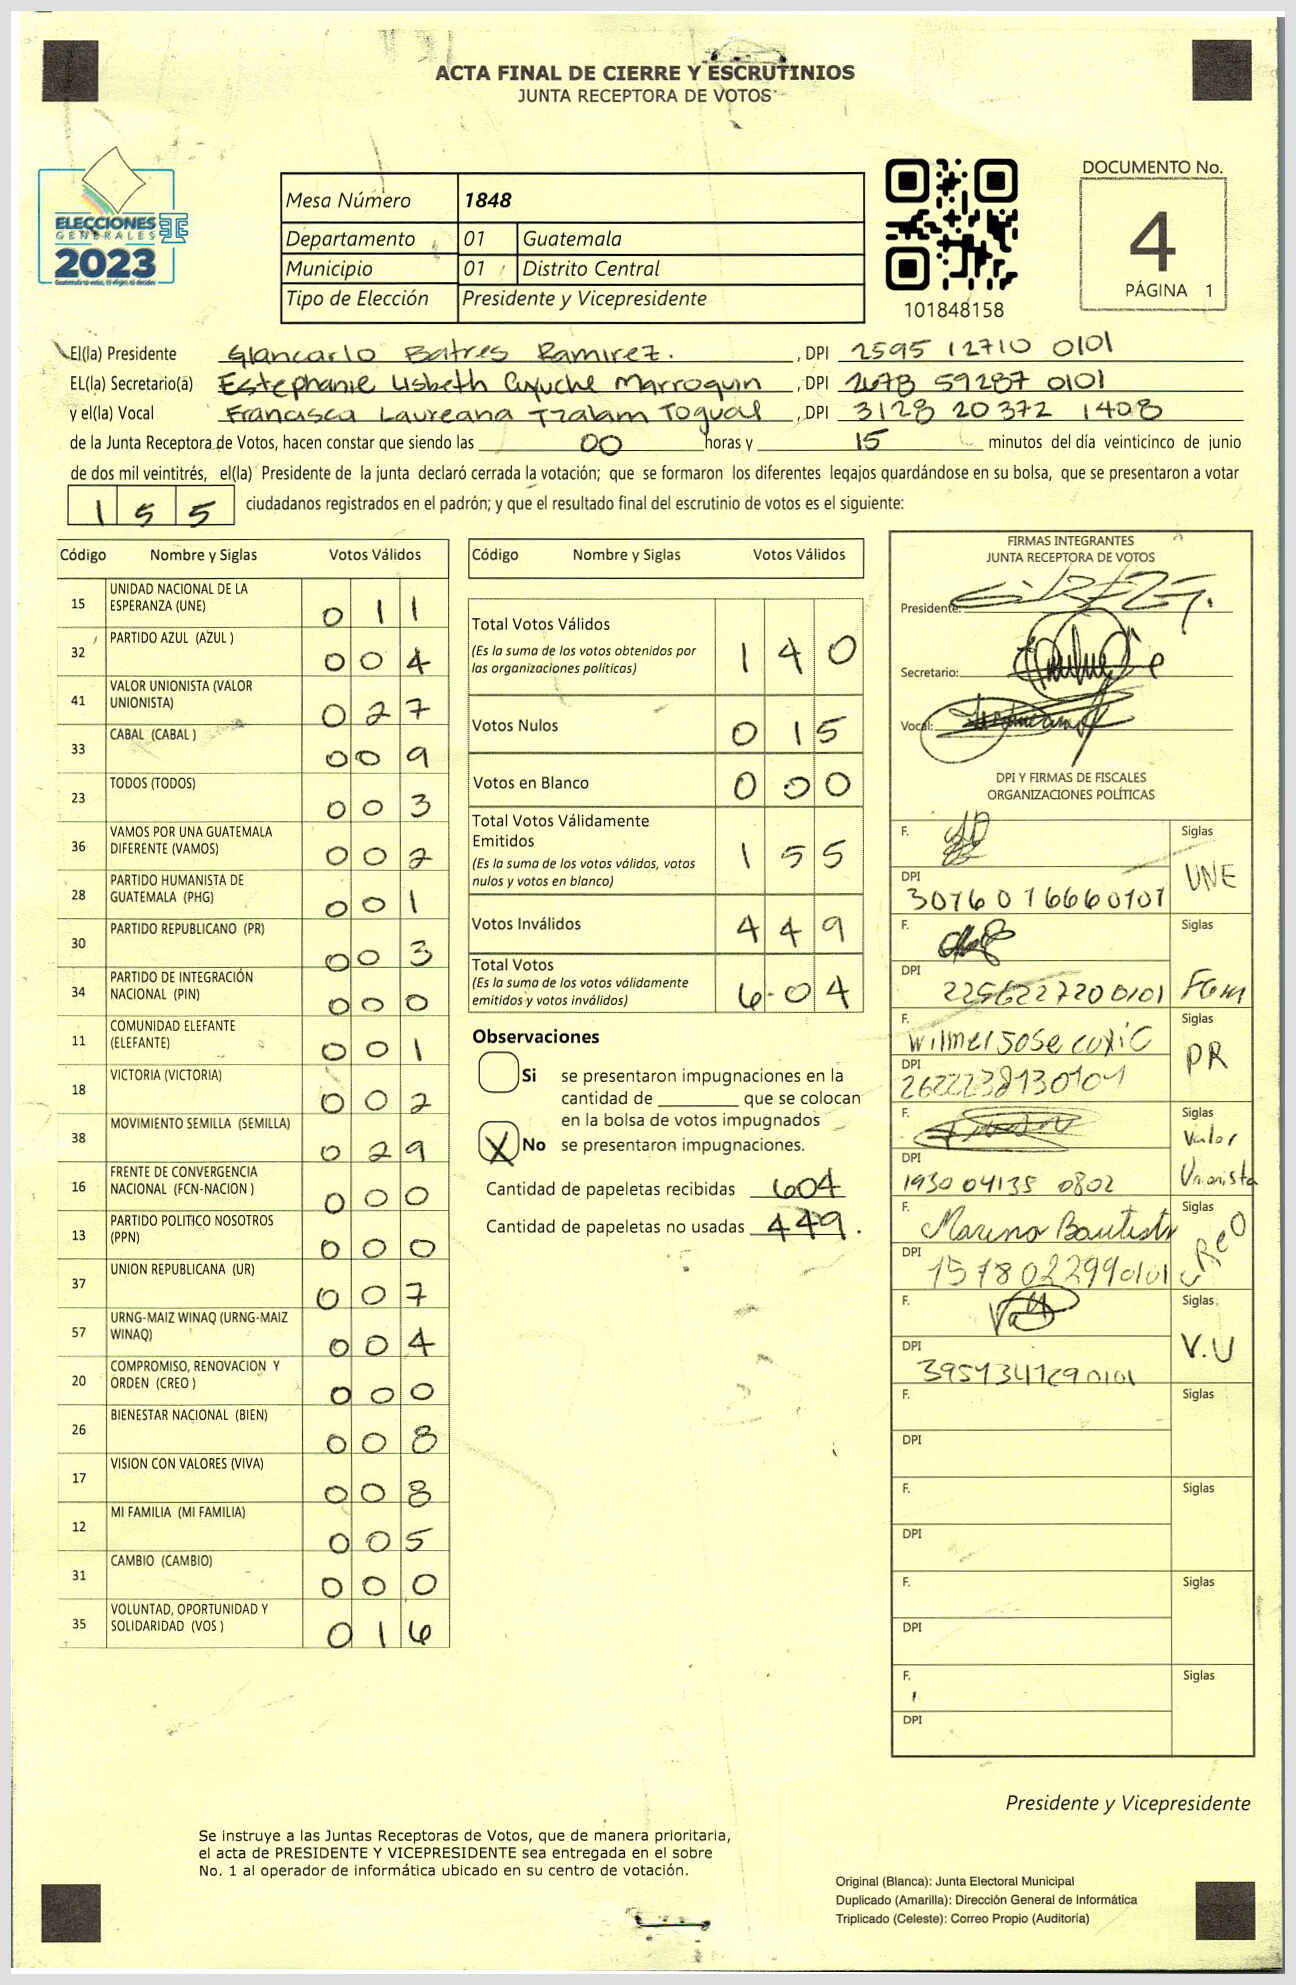 ACTA FINAL DE CIERRE Y ESCRUTINIOS
JUNTA RECEPTORA DE VOTOS
ELECCIONES
GENERALES
2023
Mesa Número 1848
Departamento 01 Guatemala
Municipio 01 Distrito Central
Tipo de Elección Presidente y Vicepresidente
101848158
DOCUMENTO No.
4
PÁGINA 1
El(la) Presidente Giancarlo Batres Ramirez. , DPI 2595 12710 0101
EL(la) Secretario(a) Estephanie Lisbeth Cuyuche Marroquin , DPI 2678 59287 0101
y el(la) Vocal Francisca Laureana Tzalam Toqual , DPI 3128 20372 1408
de la Junta Receptora de Votos, hacen constar que siendo las 00 horas y 15 minutos del día veinticinco de junio
de dos mil veintitrés, el(la) Presidente de la junta declaró cerrada la votación; que se formaron los diferentes legajos guardándose en su bolsa, que se presentaron a votar
155 ciudadanos registrados en el padrón; y que el resultado final del escrutinio de votos es el siguiente:
Código Nombre y Siglas Votos Válidos
15 UNIDAD NACIONAL DE LA
ESPERANZA (UNE) 011
32 PARTIDO AZUL (AZUL ) 004
41 VALOR UNIONISTA (VALOR
UNIONISTA) 027
33 CABAL (CABAL ) 009
23 TODOS (TODOS) 003
36 VAMOS POR UNA GUATEMALA
DIFERENTE (VAMOS) 002
28 PARTIDO HUMANISTA DE
GUATEMALA (PHG) 001
30 PARTIDO REPUBLICANO (PR) 003
34 PARTIDO DE INTEGRACIÓN
NACIONAL (PIN) 000
11 COMUNIDAD ELEFANTE
(ELEFANTE) 001
18 VICTORIA (VICTORIA) 002
38 MOVIMIENTO SEMILLA (SEMILLA) 029
16 FRENTE DE CONVERGENCIA
NACIONAL (FCN-NACION ) 000
13 PARTIDO POLITICO NOSOTROS
(PPN) 000
37 UNION REPUBLICANA (UR) 007
57 URNG-MAIZ WINAQ (URNG-MAIZ
WINAQ) 004
20 COMPROMISO, RENOVACION Y
ORDEN (CREO ) 000
26 BIENESTAR NACIONAL (BIEN) 008
17 VISION CON VALORES (VIVA) 008
12 MI FAMILIA (MI FAMILIA) 005
31 CAMBIO (CAMBIO) 000
35 VOLUNTAD, OPORTUNIDAD Y
SOLIDARIDAD (VOS ) 016
Código Nombre y Siglas Votos Válidos
Total Votos Válidos
(Es la suma de los votos obtenidos por
las organizaciones políticas) 140
Votos Nulos 015
Votos en Blanco 000
Total Votos Válidamente
Emitidos
(Es la suma de los votos válidos, votos
nulos y votos en blanco) 155
Votos Inválidos 449
Total Votos
(Es la suma de los votos válidamente
emitidos y votos inválidos) 604
Observaciones
Si se presentaron impugnaciones en la
cantidad de ________ que se colocan
en la bolsa de votos impugnados
X No se presentaron impugnaciones.
Cantidad de papeletas recibidas 604
Cantidad de papeletas no usadas 449.
FIRMAS INTEGRANTES
JUNTA RECEPTORA DE VOTOS
Presidente:
Secretario:
Vocal:
DPI Y FIRMAS DE FISCALES
ORGANIZACIONES POLÍTICAS
F. Siglas
UNE
DPI
3016016660101
F. Siglas
DPI
2256227200101
F. Wilmer Jose Cuxic Siglas
PR
DPI
2622238130101
F. Siglas
Valor
Unionista
DPI
1930 04135 0802
F. Marino Bautista Siglas
CREO
DPI
1578022990101
F. Siglas
V.U
DPI
3951341290101
F. Siglas
DPI
F. Siglas
DPI
F. Siglas
DPI
F. Siglas
DPI
Presidente y Vicepresidente
Se instruye a las Juntas Receptoras de Votos, que de manera prioritaria,
el acta de PRESIDENTE Y VICEPRESIDENTE sea entregada en el sobre
No. 1 al operador de informática ubicado en su centro de votación.
Original (Blanca): Junta Electoral Municipal
Duplicado (Amarilla): Dirección General de Informática
Triplicado (Celeste): Correo Propio (Auditoría)